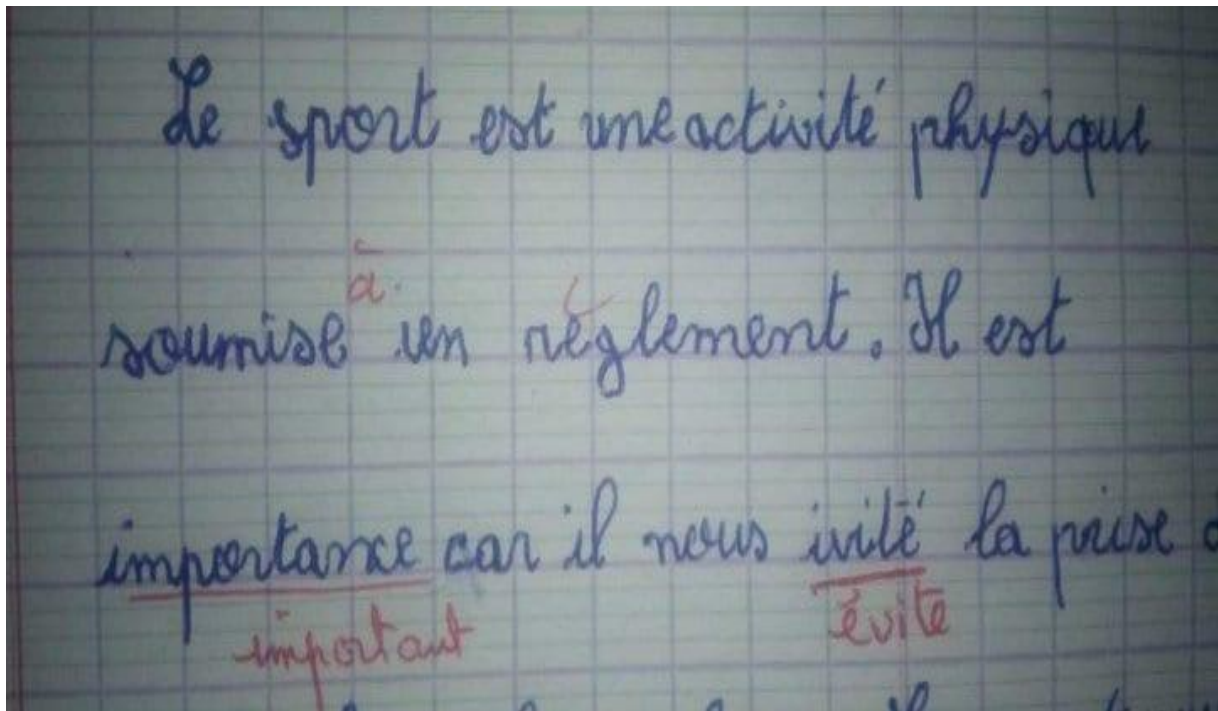 Le sport est une activité physique
à
soumise un règlement. Il est
importance car il nous ivité la prise
important évite